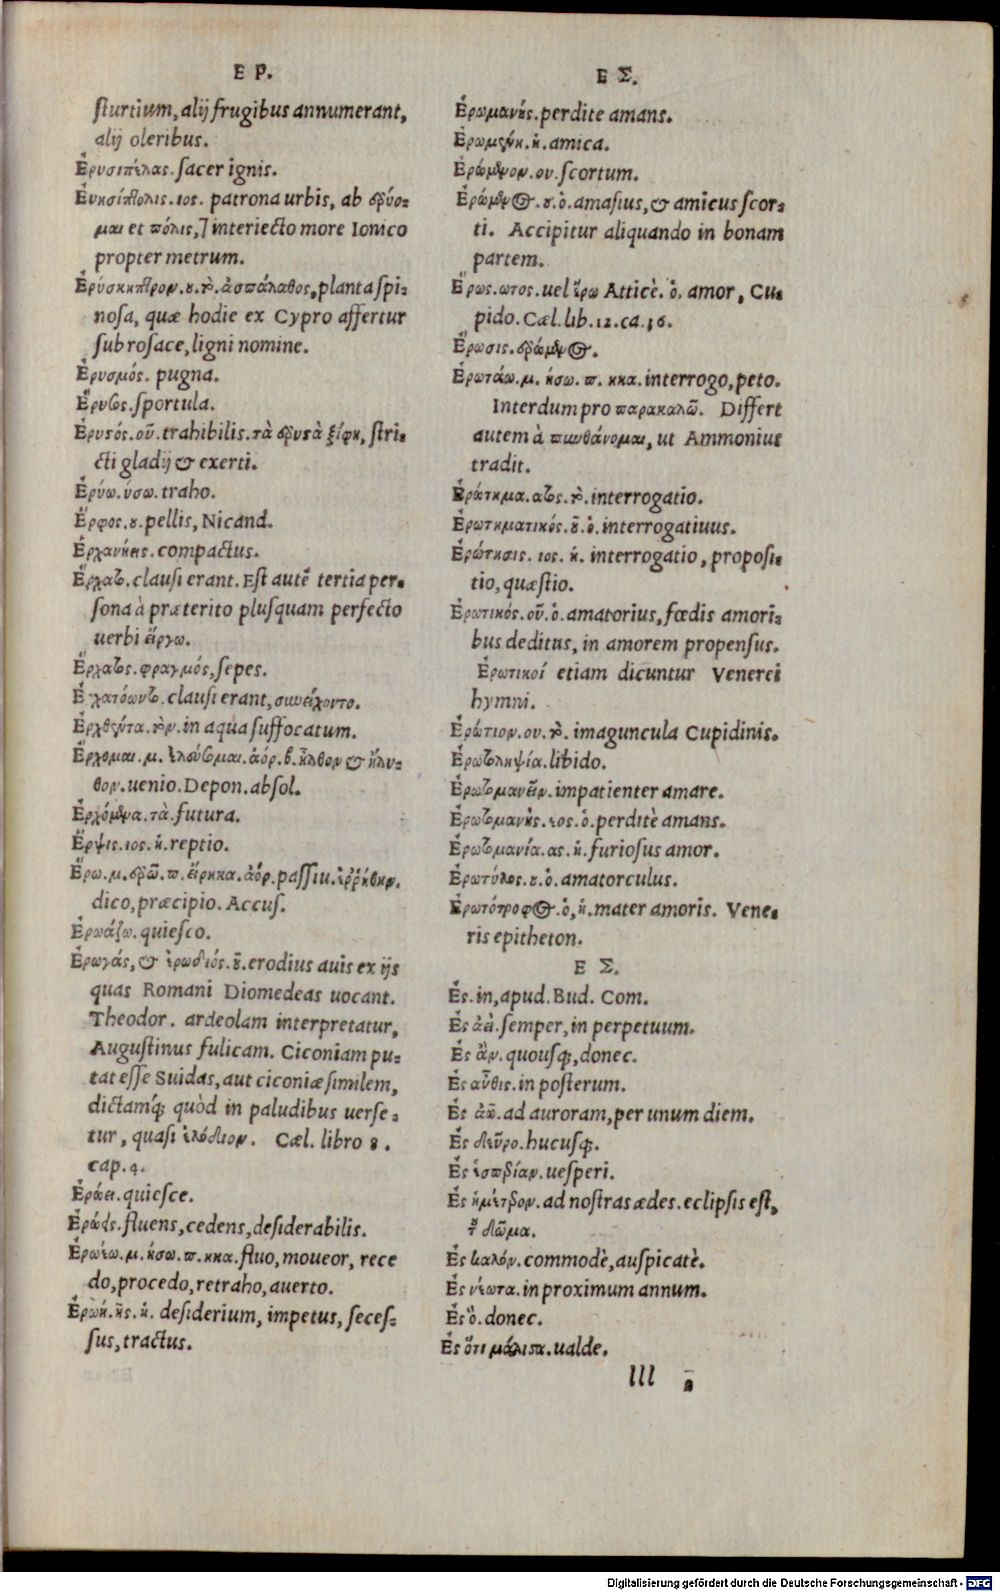 Ε Ρ.
sturtium, alij frugibus annumerant,
alij oleribus.
Ἐρυσιπέλας. sacer ignis.
Ἐυκσίπτολις. ιος. patrona urbis, ab ἐρύο-
μαι et πόλις, ] interiecto more Ionico
propter metrum.
Ἐρύσκηπτρον. ου. τὸ. ἀσπάλαθος, planta spi-
nosa, quæ hodie ex Cypro affertur
sub rosace, ligni nomine.
Ἐρυσμός. pugna.
Ἔρυτος. sportula.
Ἐρυστός. οῦ. trahibilis. τὰ ἐρυστὰ ξίφη, stri-
cti gladij & exerti.
Ἐρύω. ύσω. traho.
Ἔρφος. ου. pellis, Nicand.
Ἐρχανήεις. compactus.
Ἔρχατο. clausi erant. Est autē tertia per-
sona à præterito plusquam perfecto
uerbi εἴργω.
Ἔρχατος. φραγμός, sepes.
Ἐρχατόωντο. clausi erant, συνείχοντο.
Ἐρχθέντα. τὸν. in aqua suffocatum.
Ἔρχομαι. μ. ἐλεύσομαι. ἀόρ. β. ἦλθον & ἤλυ-
θον. uenio. Depon. absol.
Ἐρχόμενα. τὰ. futura.
Ἔρψις. ιος. ἡ. reptio.
Ἔρω. μ. ἐρῶ. π. εἴρηκα. ἀόρ. passiu. ἐρρήθην.
dico, præcipio. Accus.
Ἐρωάζω. quiesco.
Ἐρωγάς, & ἐρωδιός. οῦ. erodius auis ex ijs
quas Romani Diomedeas uocant.
Theodor. ardeolam interpretatur,
Augustinus fulicam. Ciconiam pu-
tat esse Suidas, aut ciconiæ similem,
dictamq́; quòd in paludibus uerse-
tur, quasi ἑλόδιον. Cæl. libro 8.
cap. 4.
Ἐρώει. quiesce.
Ἐρώεις. fluens, cedens, desiderabilis.
Ἐρωέω. μ. ήσω. π. ηκα. fluo, moueor, rece
do, procedo, retraho, auerto.
Ἐρωή. ῆς. ἡ. desiderium, impetus, seces-
sus, tractus.
Ε Σ.
Ἐρωμανής. perdite amans.
Ἐρωμένη. ἡ. amica.
Ἐρώμενον. ου. scortum.
Ἐρώμενος. ου. ὁ. amasius, & amicus scor-
ti. Accipitur aliquando in bonam
partem.
Ἔρως. ωτος. uel ἔρω Atticè. ὁ. amor, Cu-
pido. Cæl. lib. 12. ca. 36.
Ἔρωσις. ἐρώμενος.
Ἐρωτάω. μ. ήσω. π. ηκα. interrogo, peto.
Interdum pro παρακαλῶ. Differt
autem à πυνθάνομαι, ut Ammonius
tradit.
Ἐρώτημα. ατος. τὸ. interrogatio.
Ἐρωτηματικός. οῦ. ὁ. interrogatiuus.
Ἐρώτησις. ιος. ἡ. interrogatio, propositi-
tio, quæstio.
Ἐρωτικός. οῦ. ὁ. amatorius, fœdis amori-
bus deditus, in amorem propensus.
Ἐρωτικοί etiam dicuntur Venerei
hymni.
Ἐρώτιον. ου. τὸ. imaguncula Cupidinis.
Ἐρωτοληψία. libido.
Ἐρωτομανεῖν. impatienter amare.
Ἐρωτομανὴς. εος. ὁ. perditè amans.
Ἐρωτομανία. ας. ἡ. furiosus amor.
Ἐρωτύλος. ου. ὁ. amatorculus.
Ἐρωτότροφος. ὁ, ἡ. mater amoris. Vene-
ris epitheton.
Ε Σ.
Ἐς. in, apud. Bud. Com.
Ἐς ἀεὶ. semper, in perpetuum.
Ἐς ἂν. quousq́;, donec.
Ἐς αὖθις. in posterum.
Ἐς ἀῶ. ad auroram, per unum diem.
Ἐς δεῦρο. hucusq́;.
Ἐς ἑσπερίαν. uesperi.
Ἐς ἡμέτερον. ad nostras ædes. eclipsis est,
τοῦ δῶμα.
Ἐς καλόν. commodè, auspicatè.
Ἐς νέωτα. in proximum annum.
Ἐς ὃ. donec.
Ἐς ὅτι μάλιστα. ualde.
lll 2
Digitalisierung gefördert durch die Deutsche Forschungsgemeinschaft - DFG